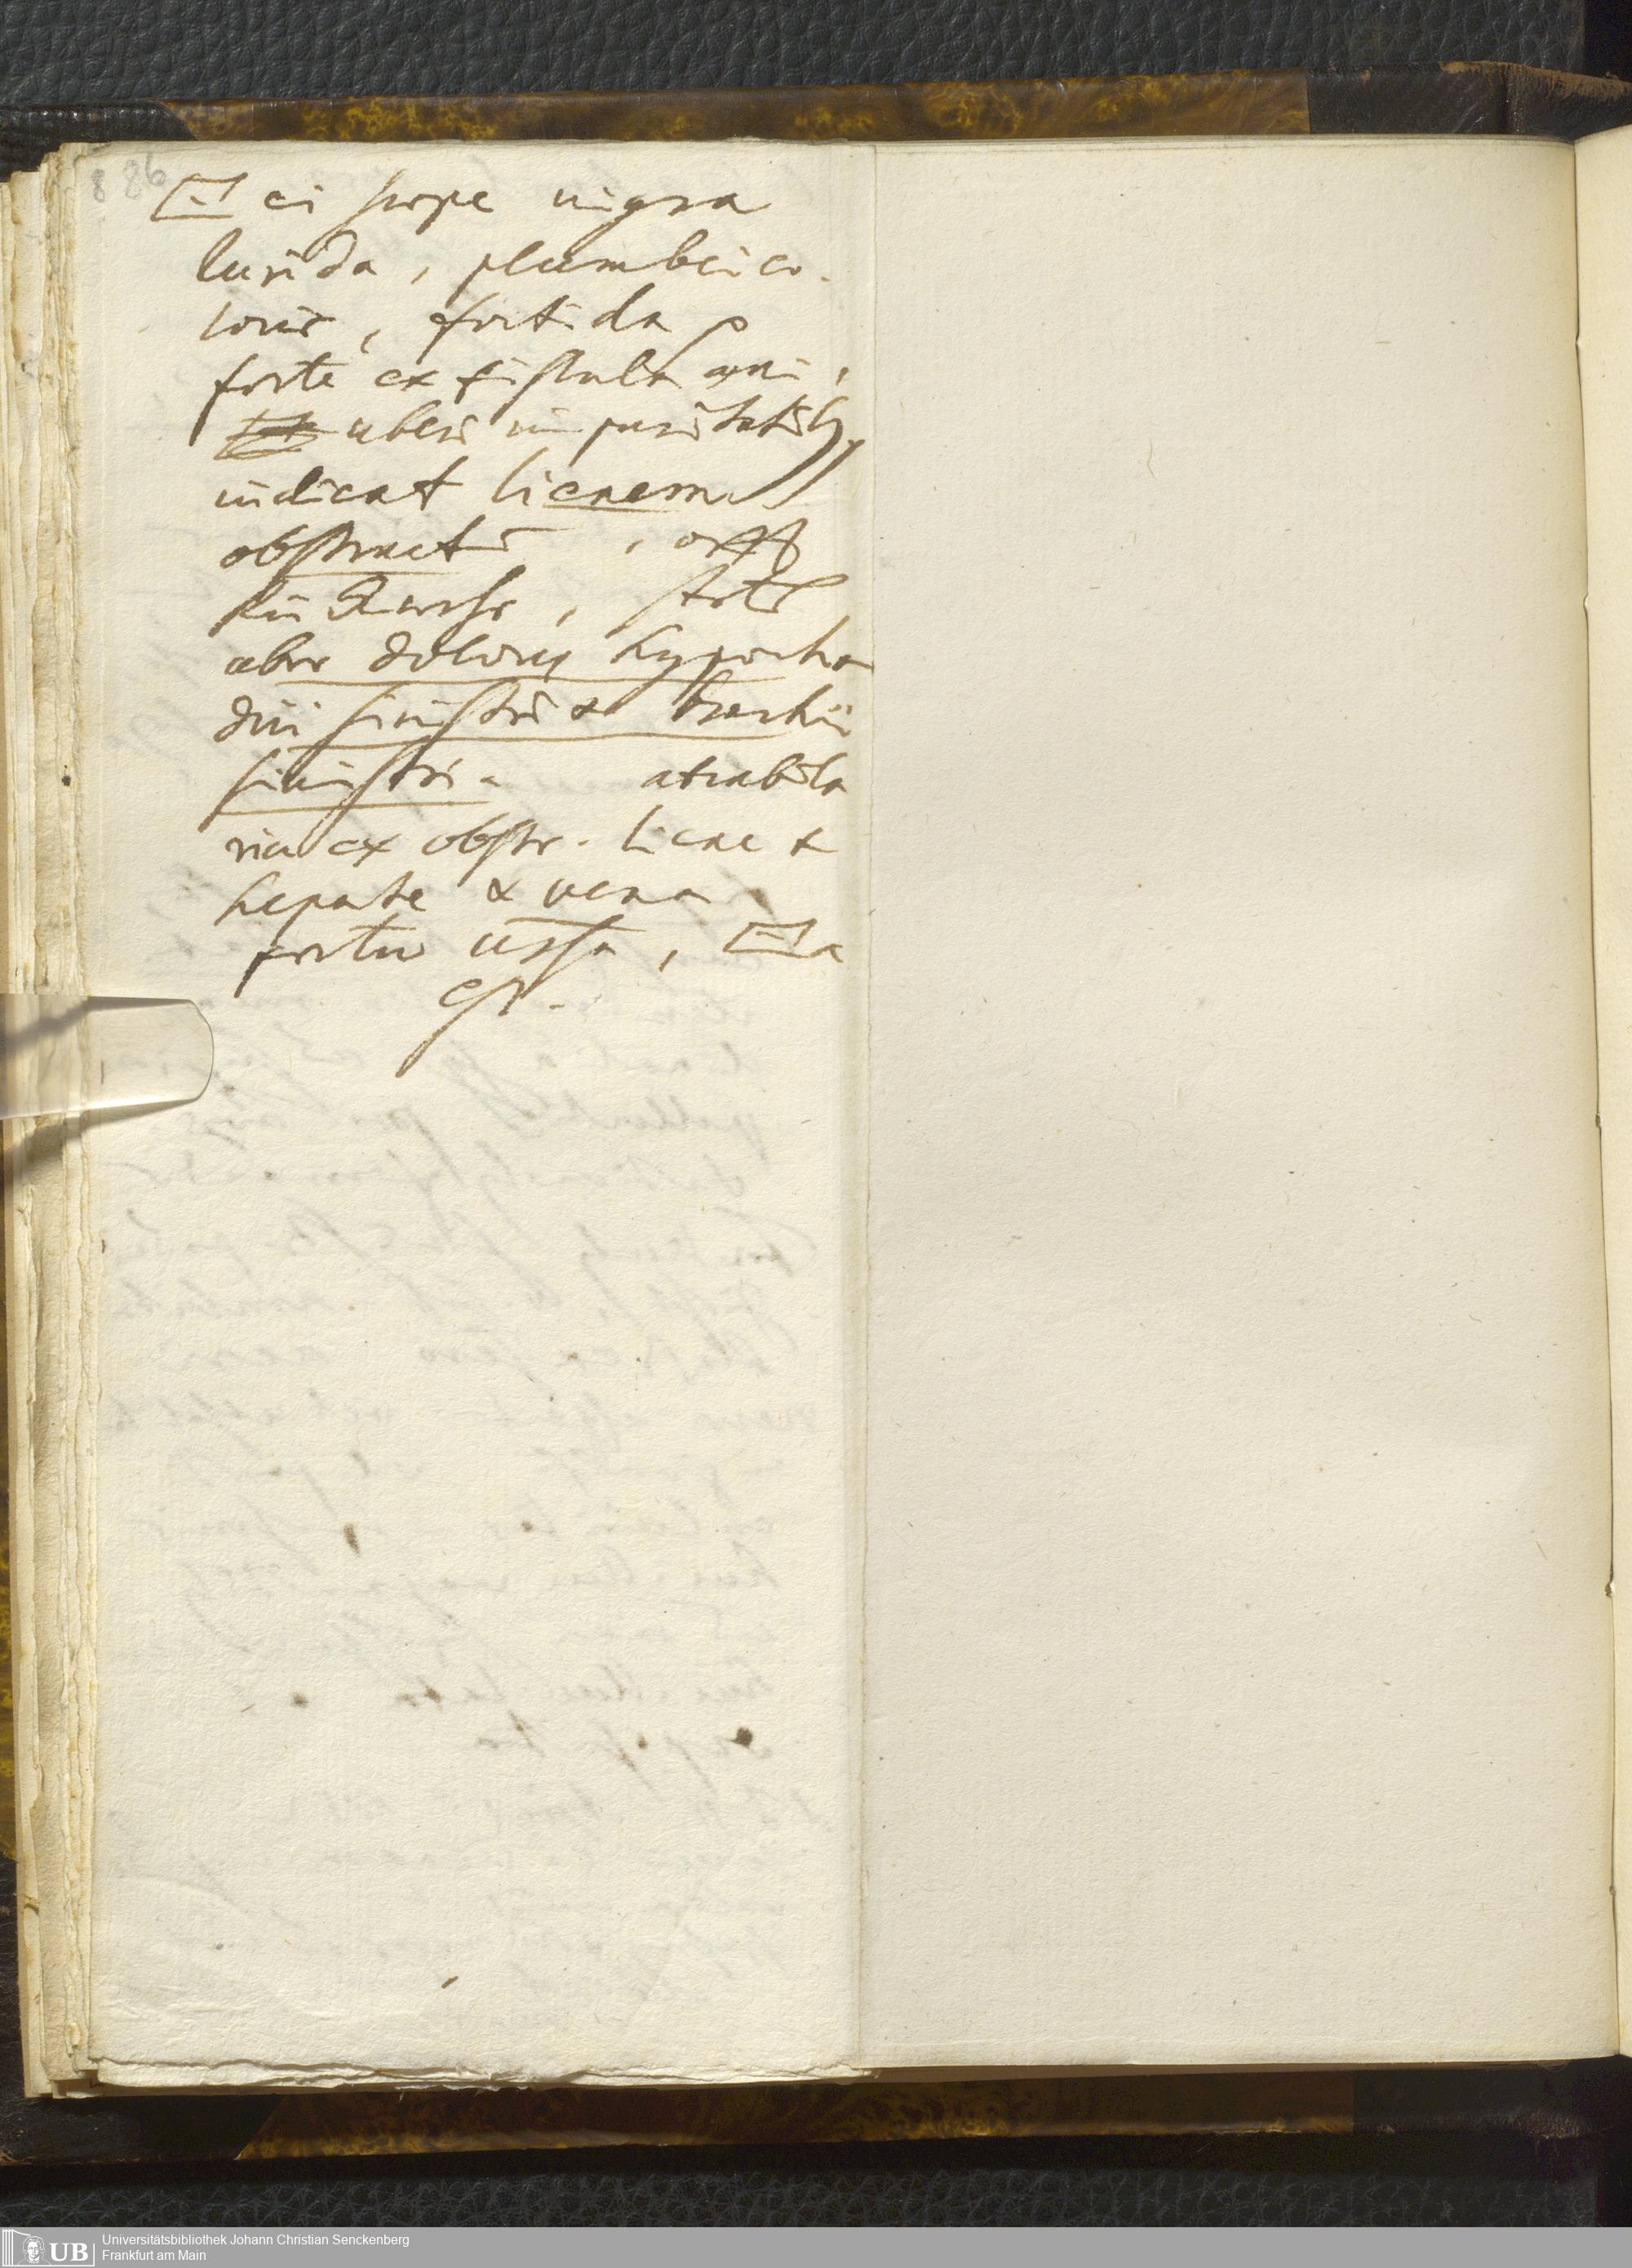 886
ei saepe nigra
lurida, plumbei co-
loris, foetida
forte ex fistula ani,
uberi impuritatib9
indicat lienem
obstructū, oft
aber dolores hypochon
drii sinistri & brachii
sinistri. atrabila
ria ex obstr. liene &
hepate & vena
portū , a
est.
Universitätsbibliothek Johann Christian Senckenberg
Frankfurt am Main
UB